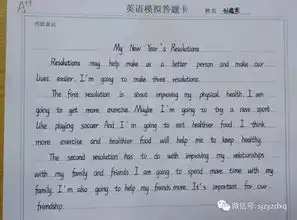 A++
英语模拟答题卡
姓名
书面表达
My New Year's Resolutions
Resolutions may help make us a better person and make our
lives easier. I'm going to make three resolutions.
The first resolution is about improving my physical health. I am
going to get more exercise. Maybe I'm going to try a new sport
like playing soccer. And I'm going to eat healthier food. I think
more exercise and healthier food will help me to keep healthy.
The second resolution has to do with improving my relationships
with my family and friends. I am going to spend more time with my
family. I'm also going to help my friends more. It's important for our
friendship.
微信号: sjzyzdxq